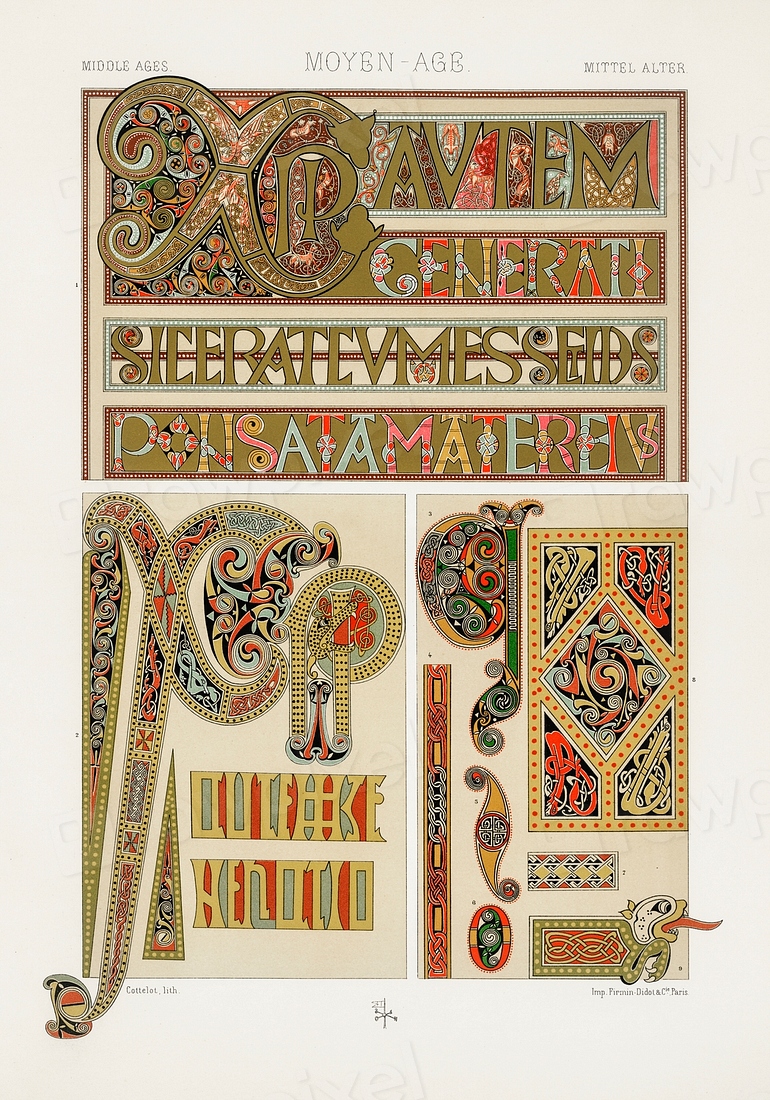 MIDDLE AGES.
MOYEN-AGE.
MITTEL ALTER.
XPI AVTEM
GENERATI
1
SICERATCVMESSETDIS
PONSATAMATEREIVS
3
4
2
8
5
7
6
9
Cottelot, lith.
Imp. Firmin-Didot & Cie. Paris.